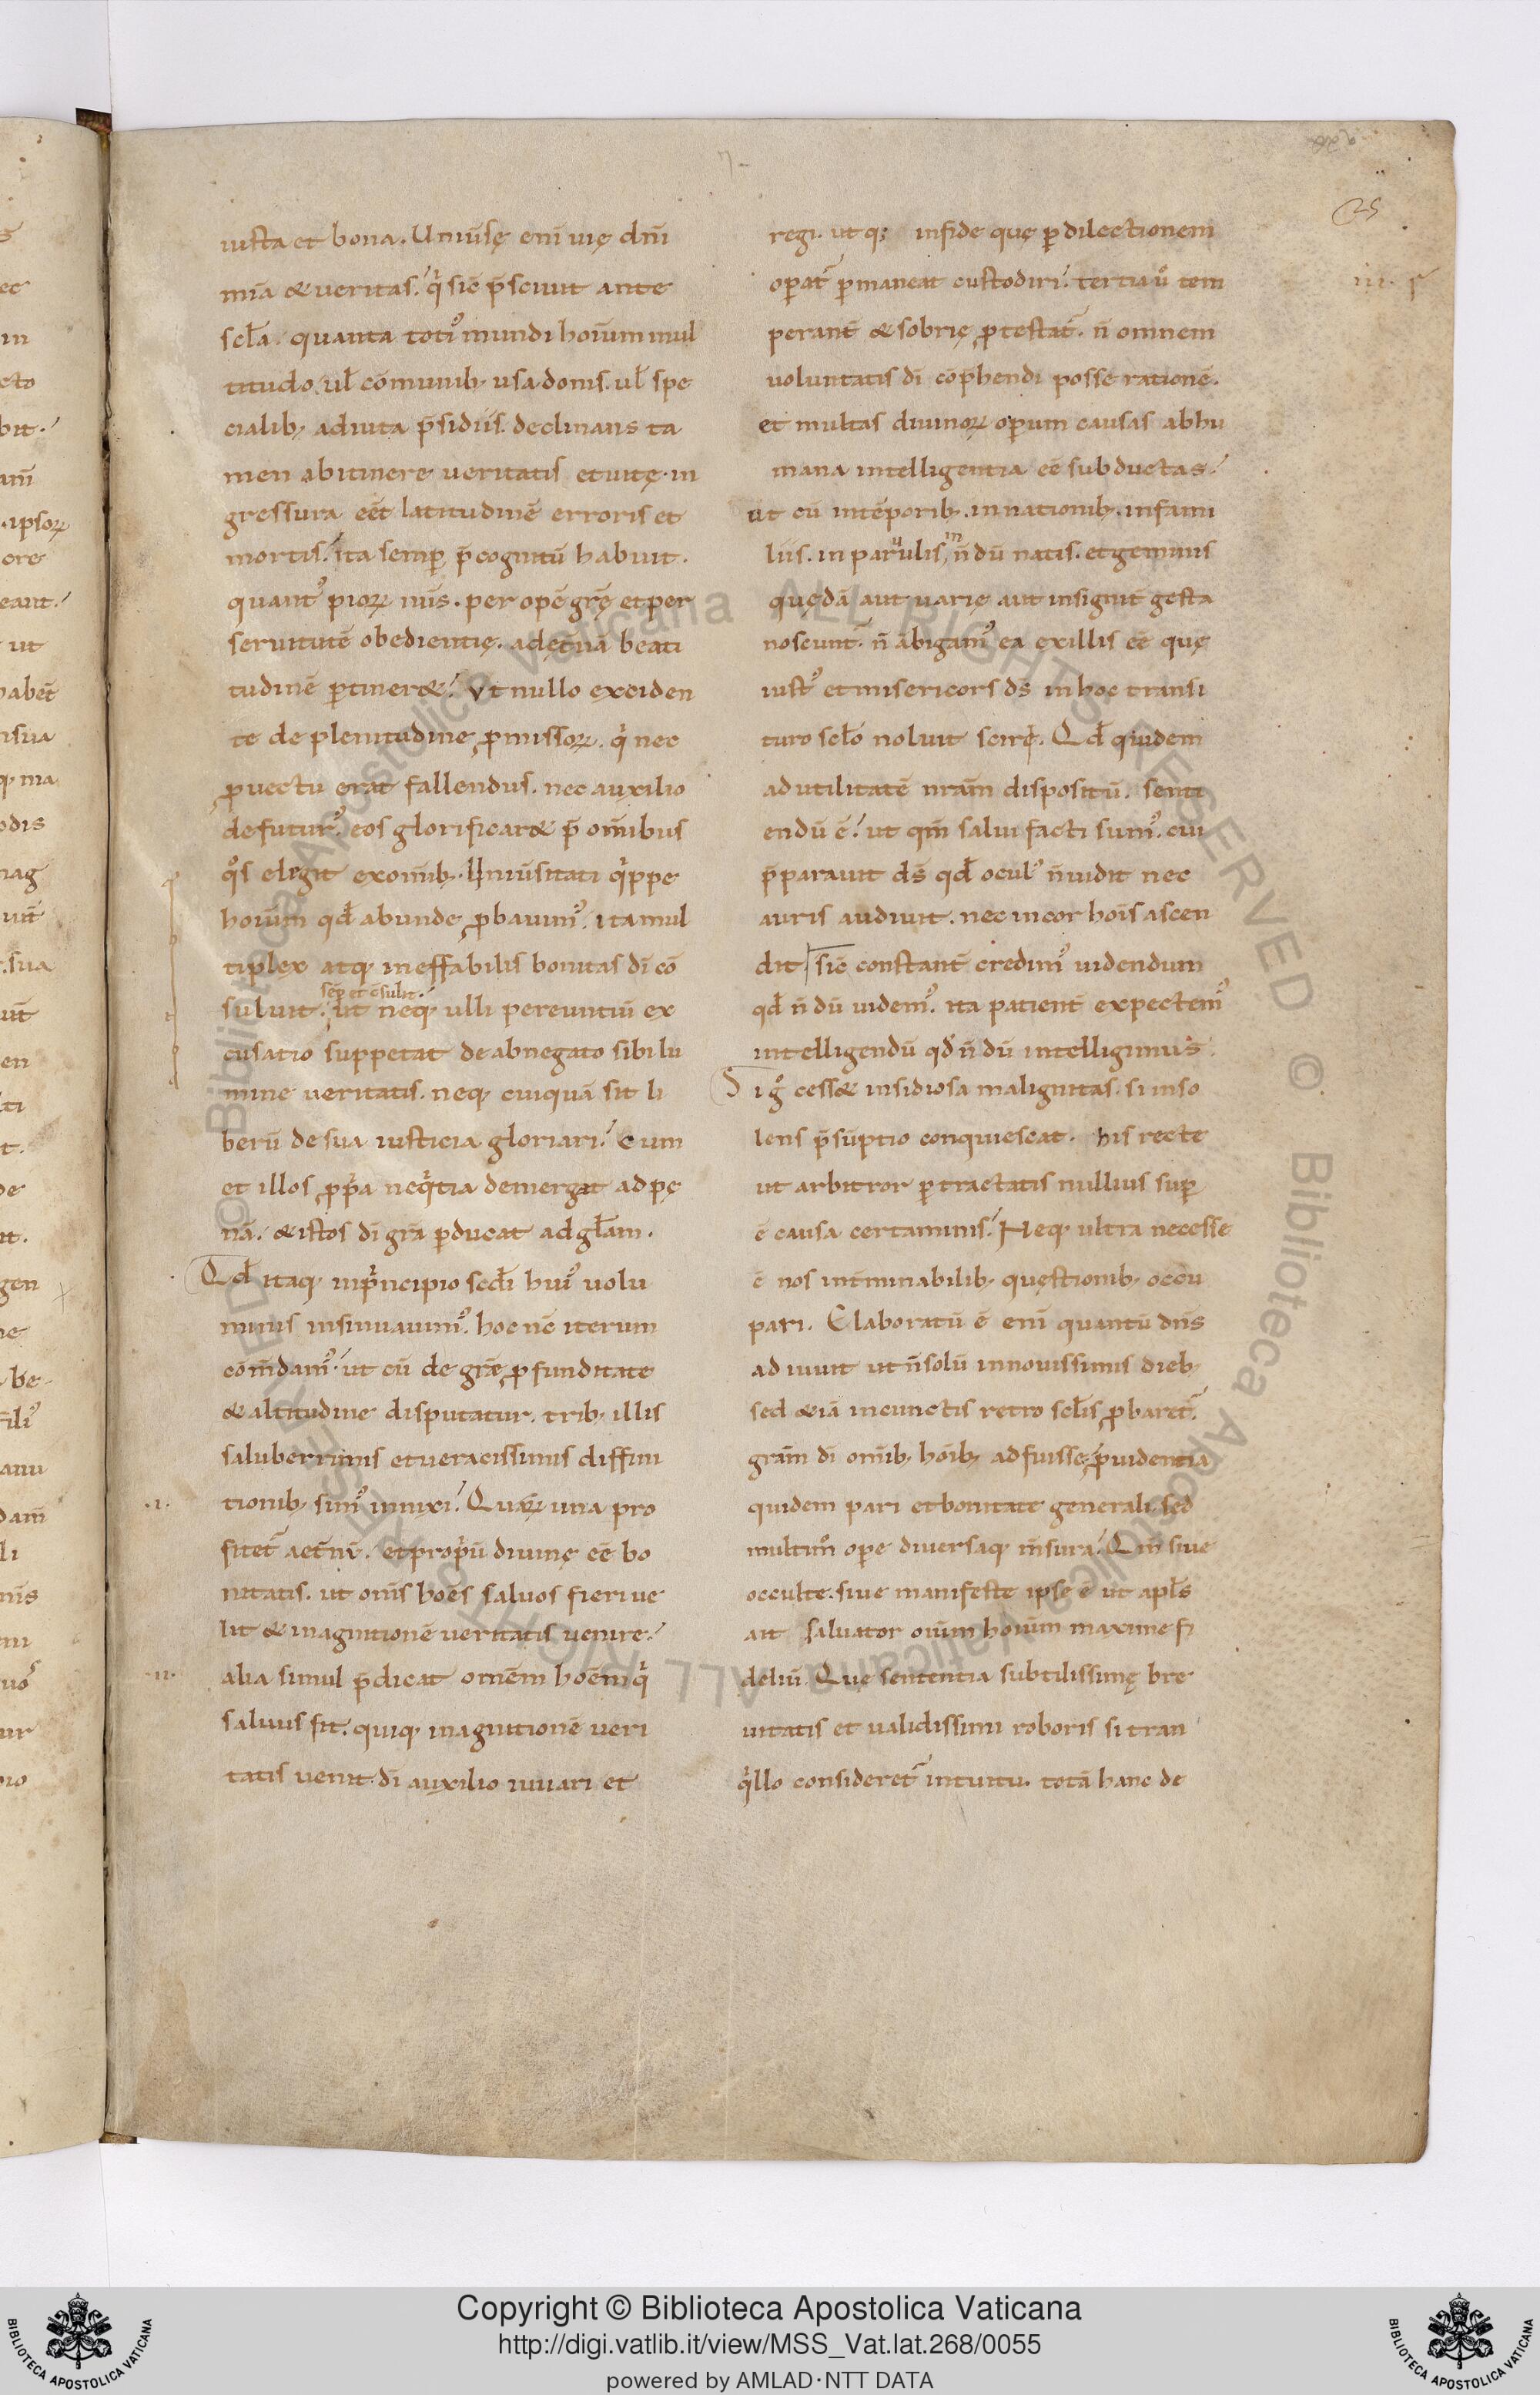 25
iusta et bona. Uniūsę enī uię dnī
mīa & ueritas. qͥ sic p̄sciuit ante
sc̄la. quanta totiꝰ mundi hoīum mul
titudo. ul̄ cōmunib; usa donis. ul̄ spe
cialib; adiuta p̄sidiis. declinans ta
men abitinere ueritatis et uitę. in
gressura eēt latitudinē erroris et
mortis. ita semꝑ p̄cognitū habuit.
quantꝰ pioꝝ nūs. per opē grę̄ et per
seruitutē obedientię. adęt̄nā beati
tudinē ꝑtiner&. Ut nullo exciden
te de plenitudine ꝓmissoꝝ. qͥ nec
ꝓuectu erat fallendus. nec auxilio
defuturꝰ. eos glorificar& p̄ om̄ibus
qͦs elegit exom̄ib;. Uniūsitati qͥppe
hoīum qđ abunde ꝓbauimꝰ. ita mul
tiplex atq; ineffabilis bonitas dī cō
sēꝑ et c̄sulit.
suluit. ut neq; ulli pereuntiū ex
cusatio suppetat de abnegato sibi lu
mine ueritatis. neq; cuiquā sit li
berū de sua iusticia gloriari. Cum
et illos ꝓpͥa neqͥtia demergat ad pę
nā. & istos dī gr̄a ꝑducat ad gl̄am.
Qđ itaq; inpͥncipio sc̄di huiꝰ uolu
minis insinuauimꝰ. hoc nc̄ iterum
com̄damꝰ. ut cū de grę̄ ꝓfunditate
& altitudine disputatur. trib; illis
saluberrimis et ueracissimis diffini
.i. tionib; simꝰ innixi. Quaꝝ una pro
fitet᷑ aet̄nā. et propͥū diuinę eē bo
nitatis. ut om̄s hoēs saluos fieri ue
lit & inagnitionē ueritatis uenire.
.ii. alia simul p̄dicat omnēm hoēm qͥ
saluus fit. quiq; inagnitionē ueri
tatis uenit. dī auxilio iuuari et
regi. ut q; infide quę ꝑ dilectionem
oꝑat᷑ ꝑmaneat custodiri. tertia uͦ tem iii.
perant̄ & sobrię ꝓtestat᷑. n̄ omnem
uoluntatis dī cōp̄hendi posse rationē.
et multas diuinoꝝ oꝑum causas abhu
mana intelligentia eē subductas.
ut cū intēporib;. innationib;. infami
liis. in paruulis, in n̄dū natis. et geminis
quędā aut uarię aut insignit̄ gesta
noscunt᷑. n̄ ābigamꝰ ea exillis eē quę
iustꝰ et misericors ds̄ in hoc transi
turo sc̄lo noluit scirę. Qđ quidem
ad utilitatē nr̄am dispositū. senti
endū ē. ut qm̄ salui facti sumꝰ. cui
p̄parauit ds̄ qđ oculꝰ n̄ uidit nec
auris audiuit. nec in cor hoīs ascen
dit sic constant̄ credimꝰ uidendum
qđ n̄dū uidemꝰ. ita patient̄ expectemꝰ
intelligendū qđ n̄dū intelligimus.
Si gͦ cess& insidiosa malignitas. si inso
lens p̄sūptio conquiescat. his recte
ut arbitror ꝑtractatis nullius suꝑ
ē causa certaminis. Neq; ultra necesse
ē nos int̄minabilib; quęstionib; occu
pari. Elaboratū ē enī quantū dn̄s
adiuuit ut n̄ solū innouissimis dieb;
sed &iā incunctis retro sc̄lis ꝓbaret᷑.
gr̄am dī om̄ib; hoīb; adfuisse. ꝓuidentia
quidem pari et bonitate generali. sed
multimͦ oꝑe diuersaq; m̄sura. Qm̄ siue
occulte. siue manifeste ipse ē ut apl̄s
ait saluator oīum hoīum maxime fi
deliū. Quę sententia subtilissimę bre
uitatis et ualidissimi roboris si tran
qͥllo consideret᷑ intuitu. totā hanc de
Copyright © Biblioteca Apostolica Vaticana
http://digi.vatlib.it/view/MSS_Vat.lat.268/0055
powered by AMLAD·NTT DATA
BIBLIOTECA APOSTOLICA VATICANA
BIBLIOTECA APOSTOLICA VATICANA